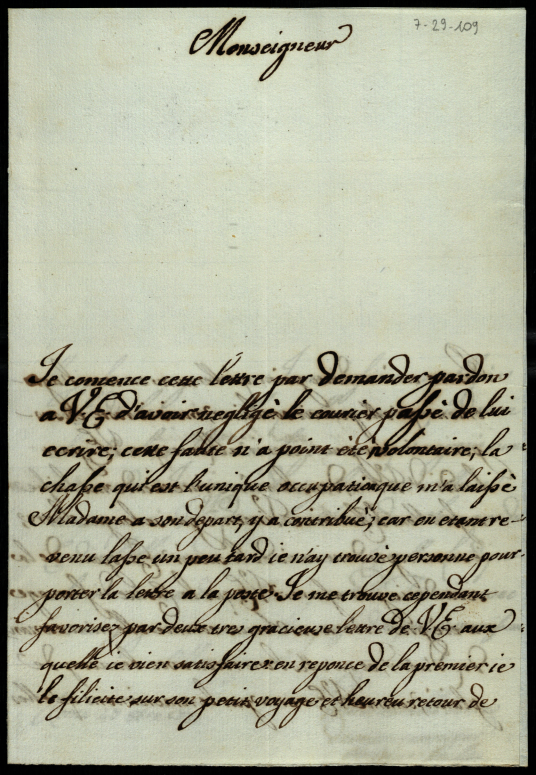 7-29-109
Monseigneur
Je comence cette lettre par demander pardon
a V.E. d'avoir negligè le courier passè de lui
ecrire; cette faute n'a point étè volontaire; la
chasse qui est l'unique occupation que m'a laissè
Madame a son depart, y a contribuè; car en etant re-
venu lasse un peu tard ie n'ay trouvè personne pour
porter la lettre a la poste. Je me trouve cependant
favorisez par deux tres gracieuse lettre de V.E. aux
quelle ie vien satisfaire: en reponce de la premier ie
le filicite sur son petit voyage et heureu retour de